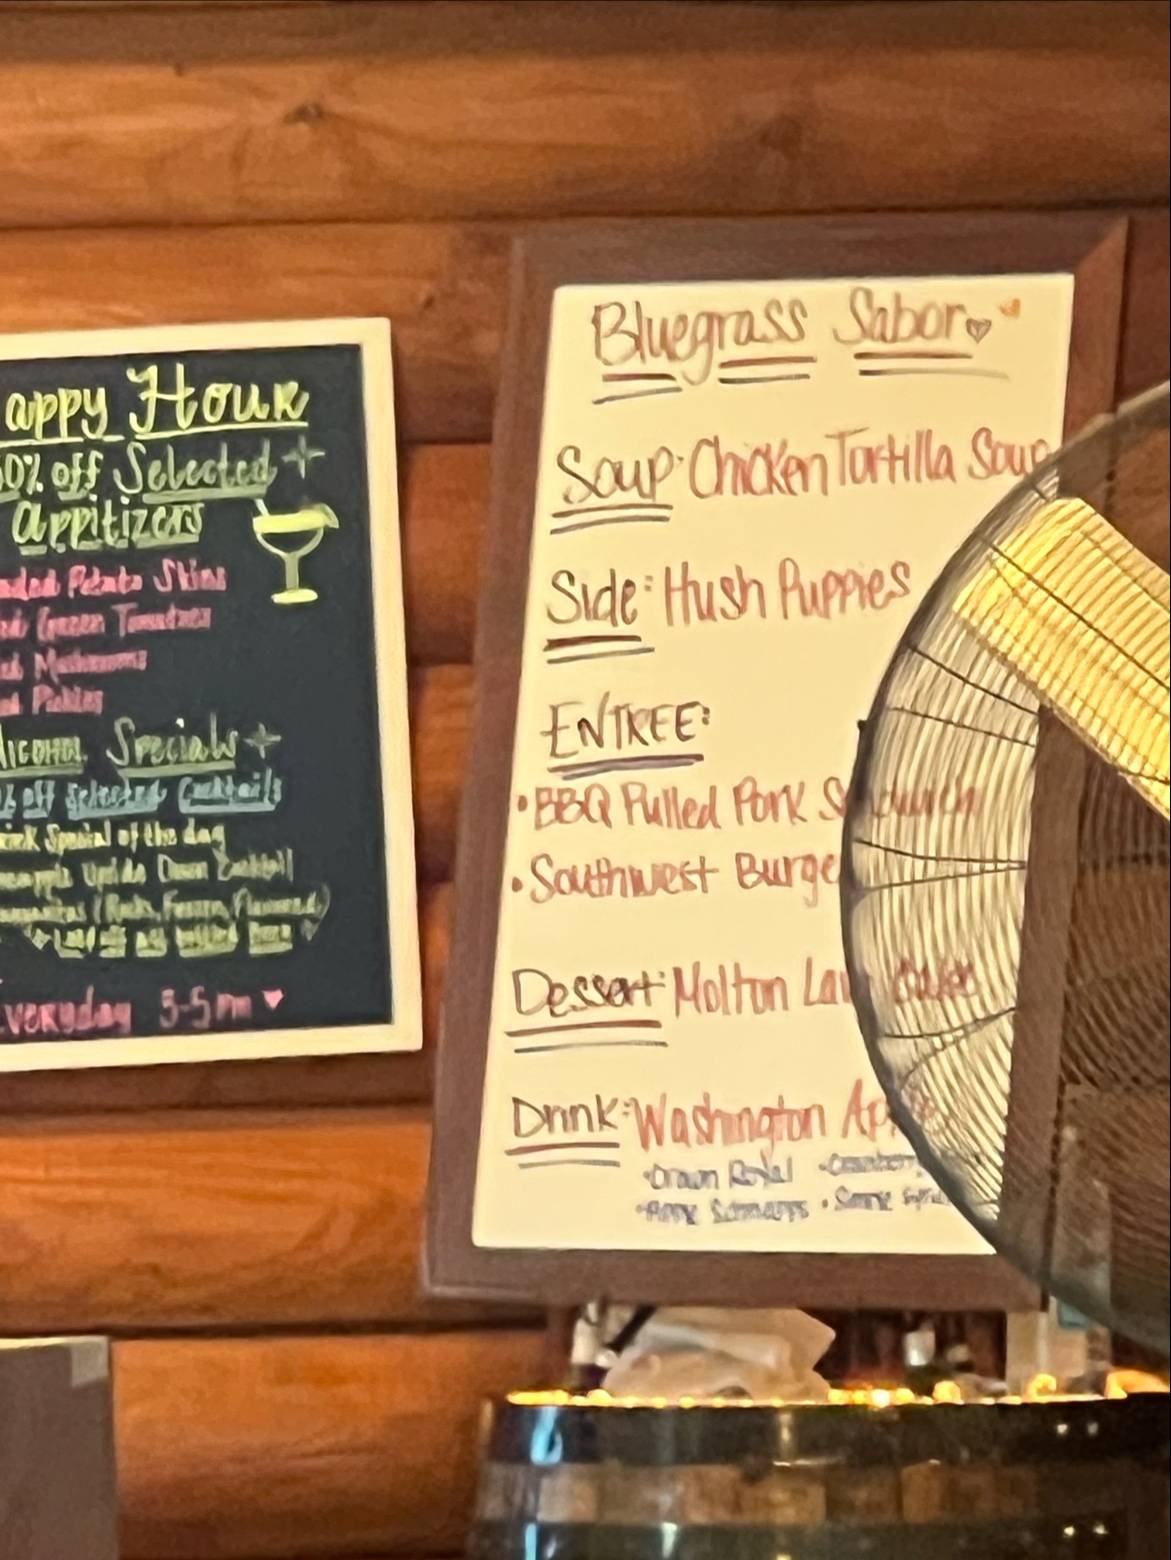 appy Hour
0% off Selected
appitizers
Potato Skins
Green Tomatoes
Mushrooms
Pickles
Specials
% off Selected Cocktails
Special of the day
Upside Down Cocktail
(Rocks, Frozen, Flavored)
off any bottled Beer
Everyday 3-5pm
Bluegrass Sabor
Soup: Chicken Tortilla Soup
Side: Hush Puppies
ENTREE:
• BBQ Pulled Pork Sandwich
• Southwest Burge
Dessert: Molton Lava Cake
Drink: Washington Apple
• Crown Royal • Cranberry
• Apple Schnapps •